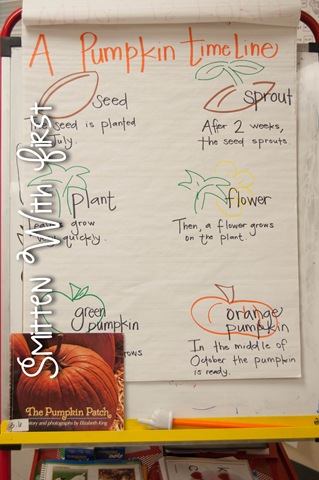 A Pumpkin timeline
seed
seed is planted
July.
sprout
After 2 weeks,
the seed sprouts.
plant
grow
quickly.
flower
Then, a flower grows
on the plant.
green
pumpkin
orange
pumpkin
In the middle of
October the pumpkin
is ready.
Smitten With First
The Pumpkin Patch
story and photographs by Elizabeth King